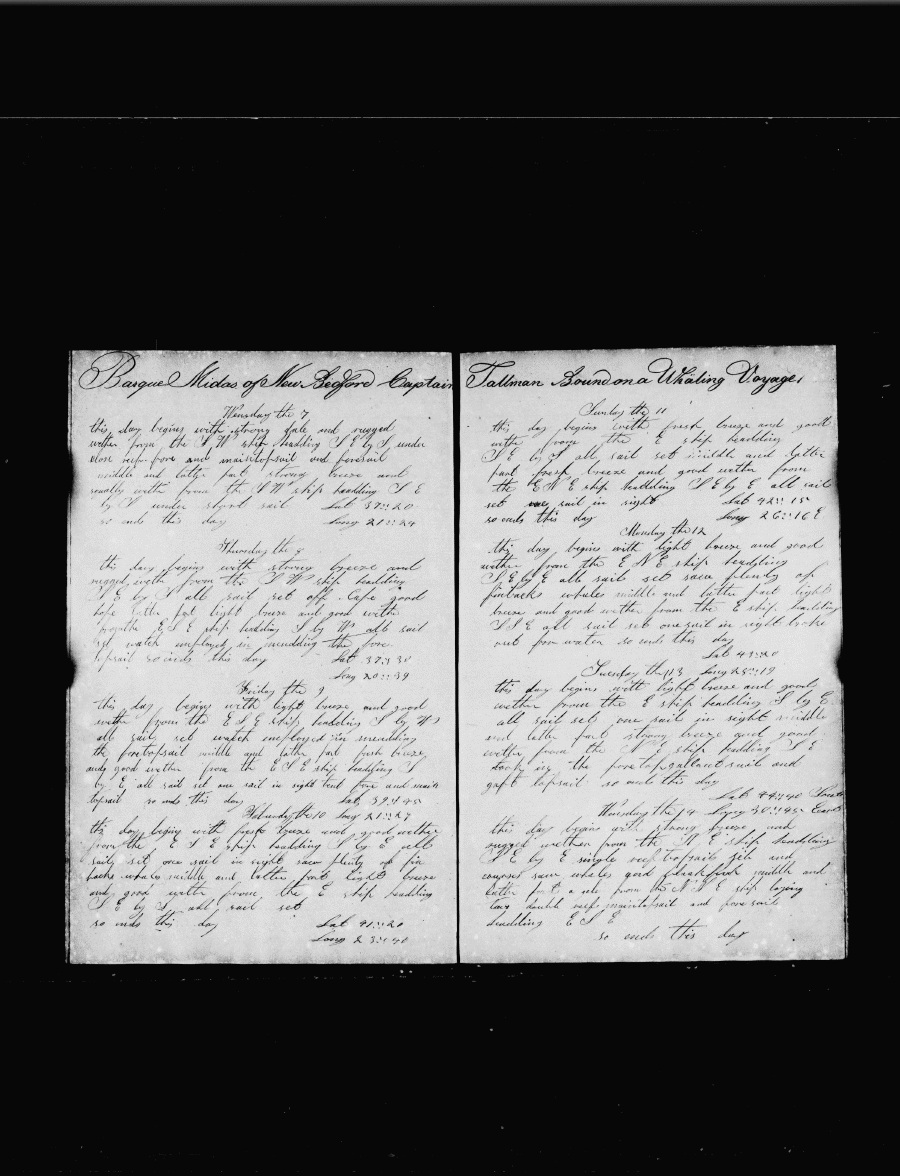 Barque Midas of New Bedford Captain
Wensday the 7
this day begins with strong gale and rugged
wether from the S W ship headding S E by S under
close reep fore and maintopsail and foresail
middle and latter part strong breeze and
wether from the S W ship headding S E
by S under sail Lat 37:20
so ends this day Long 21:24
Thursday the 8
this day begins with strong breeze and
rugged wether from the S W ship headding
S E by S all sail set off Cape good
hope latter part light breeze and good wether
from the E S E ship headding S by W all sail
set watch employed in mendding the fore
topsail so ends this day Lat 37:30
Long 20:39
Friday the 9
this day begins with light breeze and good
wether from the E S E ship headding S by W
all sail set watch employed in mendding
the foretopsail middle and latter part fresh breeze
and good wether from the E S E ship headding S
by E all sail set one sail in sight bent fore and main
topsail so ends this day Lat 39:45
the 10 Long 21:27
this day begins with fresh breeze and good wether
from the E S E ship headding S by E all
sail set one sail in sight saw plenty of fin
backs whales middle and latter part light breeze
and good wether from the E ship headding
S E by S all sail set
so ends this day Lat 41:20
Long 23:40
Tallman Bound on a Whaling Voyage
Sunday the 11
this day begins with fresh breeze and good
wether from the E ship headding
S E by S all sail set middle and latter
part fresh breeze and good wether from
the E N E ship headding S E by E all sail
set one sail in sight Lat 42:15
so ends this day Long 26:16 E
Monday the 12
this day begins with light breeze and good
wether from the E N E ship headding
S E by E all sail set saw plenty of
finbacks whales middle and latter part light
breeze and good wether from the E ship headding
S S E all sail set one sail in sight broke
out for water so ends this day
Lat 43:20
Tuesday the 13 Long 28:19
this day begins with light breeze and good
wether from the E ship headding S by E
all sail set one sail in sight middle
and latter part strong breeze and good
wether from the N E ship headding S E
took in the foretopgallantsail and
gaft topsail so ends this day
Lat 44:40 South
Wensday the 14 Long 30:45 East
this day begins with strong breeze and
rugged wether from the N E ship headding
S E by E single reep topsails jib and
courses saw whales and blackfish middle and
latter part a gale from the N N E ship laying
too double reep maintopsail and foresail
headding E S E
so ends this day